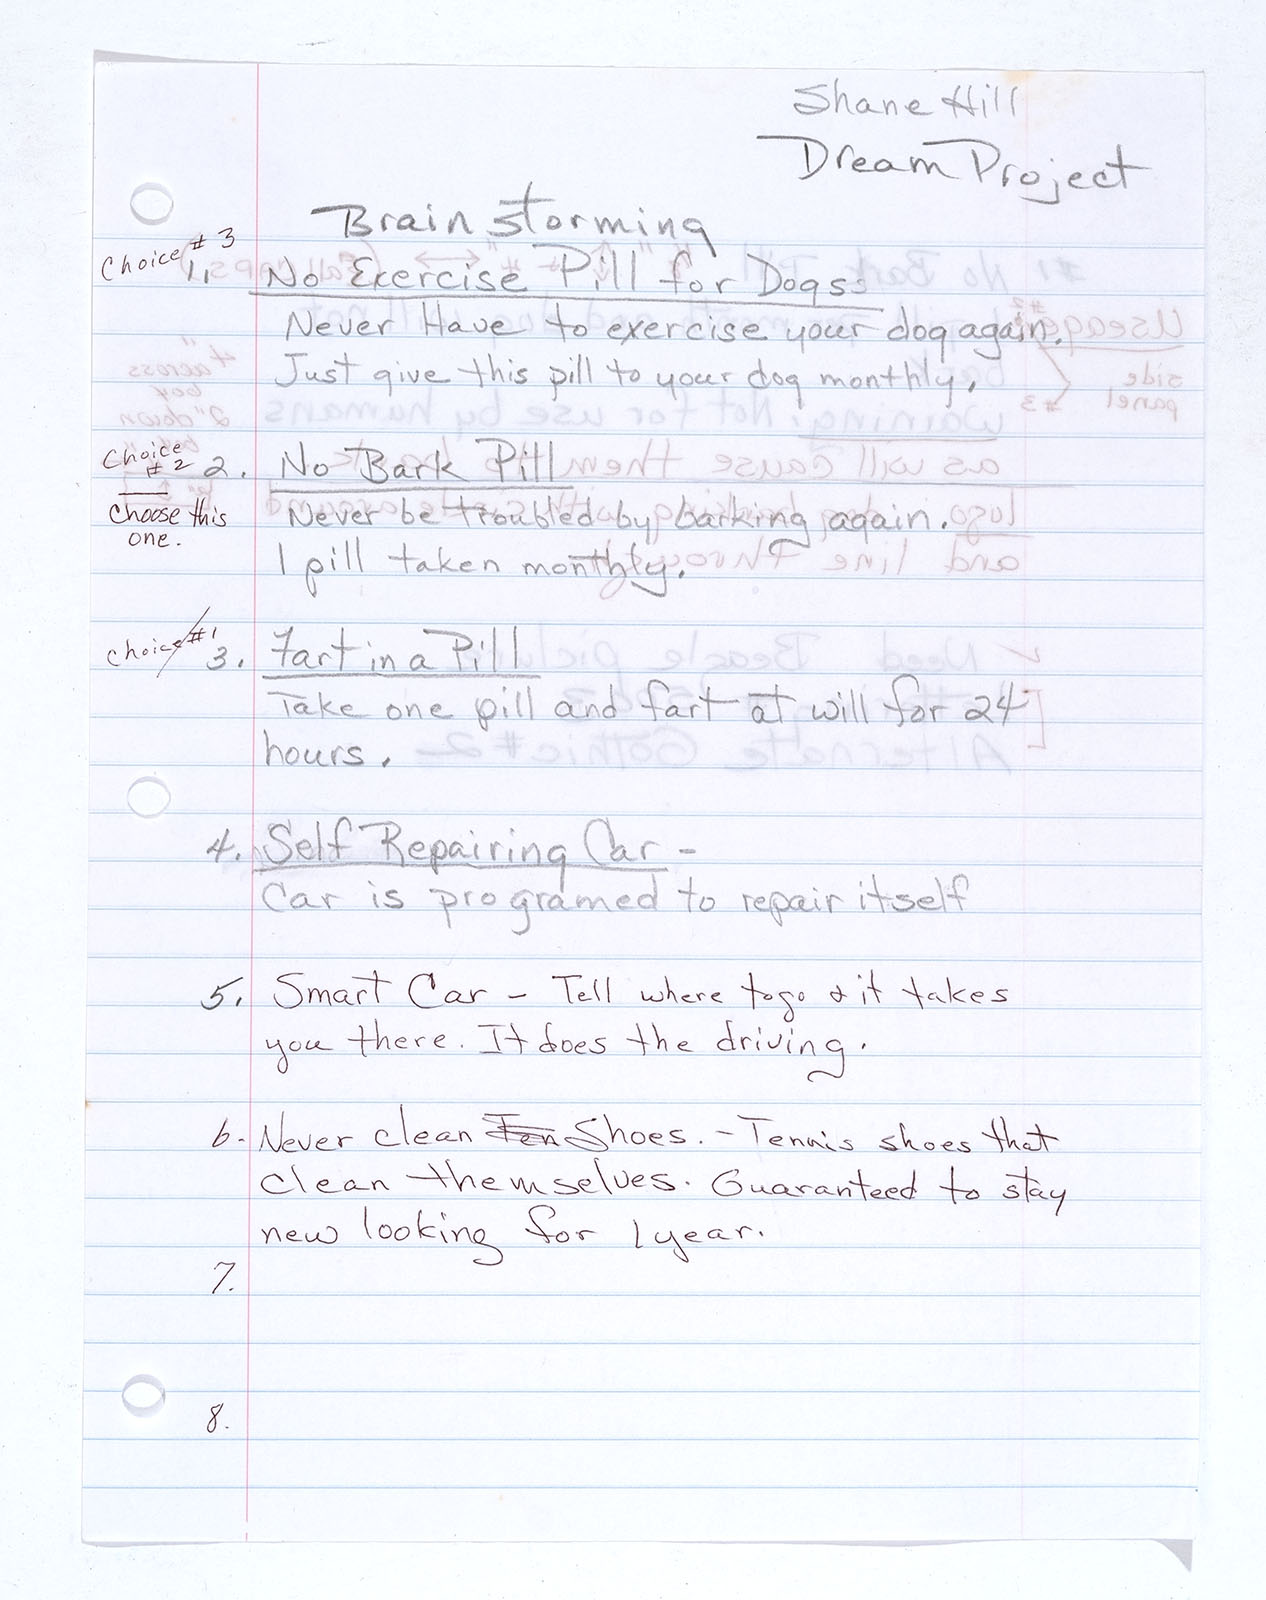 Shane Hill
Dream Project
Brain Storming
Choice #3
1. No Exercise Pill for Dogs:
Never Have to exercise your dog again.
Just give this pill to your dog monthly.
Choice
#2 2. No Bark Pill
choose this
one.
Never be troubled by barking again.
1 pill taken monthly.
Choice #1
3. Fart in a Pill
Take one pill and fart at will for 24
hours.
4. Self Repairing Car -
Car is programed to repair itself
5. Smart Car - Tell where to go & it takes
you there. It does the driving.
6. Never clean Ten Shoes. - Tennis shoes that
clean themselves. Guaranteed to stay
new looking for 1 year.
7.
8.